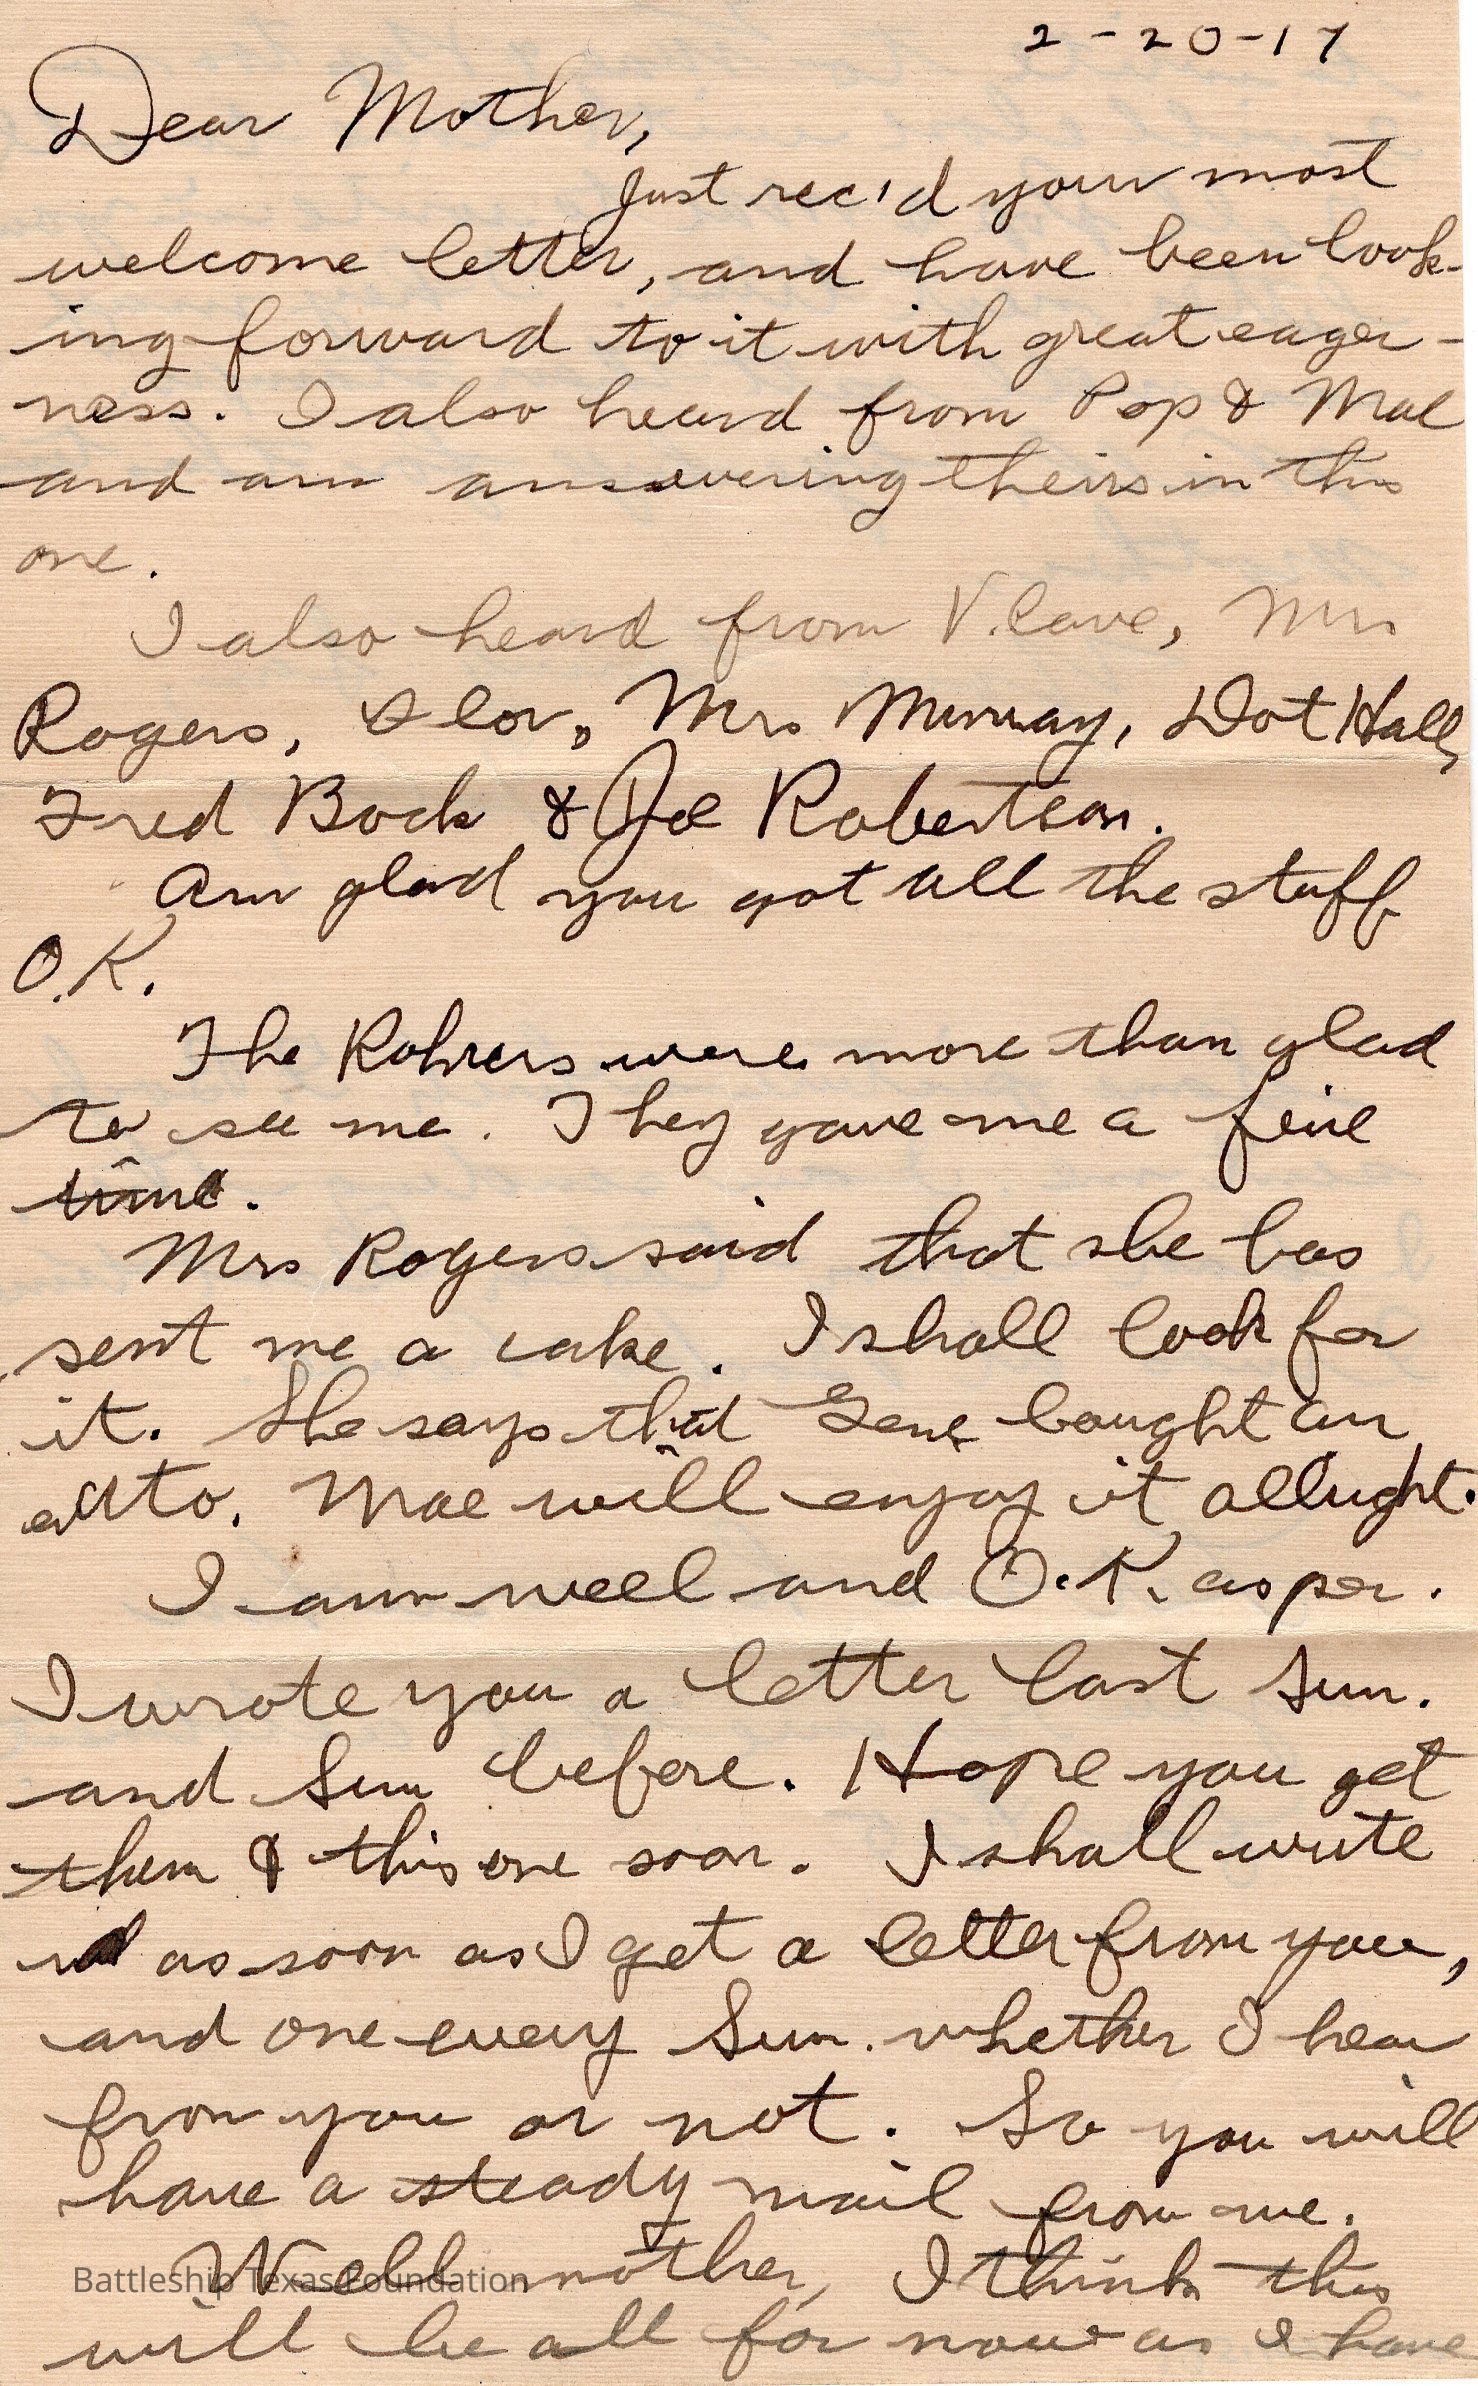 2-20-17
Dear Mother,
Just rec'd your most
welcome letter, and have been look-
ing forward to it with great eager-
ness. I also heard from Pop & Mae
and am answering theirs in this
one.
I also heard from V. Cave, Mrs
Rogers, Mrs Murray, Dot Hall,
Fred Bock & Joe Robertson.
Am glad you got all the stuff
O.K.
The Rohrers were more than glad
to see me. They gave me a fine
time.
Mrs Rogers said that she has
sent me a cake. I shall look for
it. She says that Gene bought an
auto. Mae will enjoy it allright.
I am well and O.K. as per.
I wrote you a letter last Sun.
and Sun before. Hope you get
them & this one soon. I shall write
as soon as I get a letter from you,
and one every Sun. whether I hear
from you or not. So you will
have a steady mail from me.
Well mother, I think this
Battleship Texas Foundation
will be all for now as I have